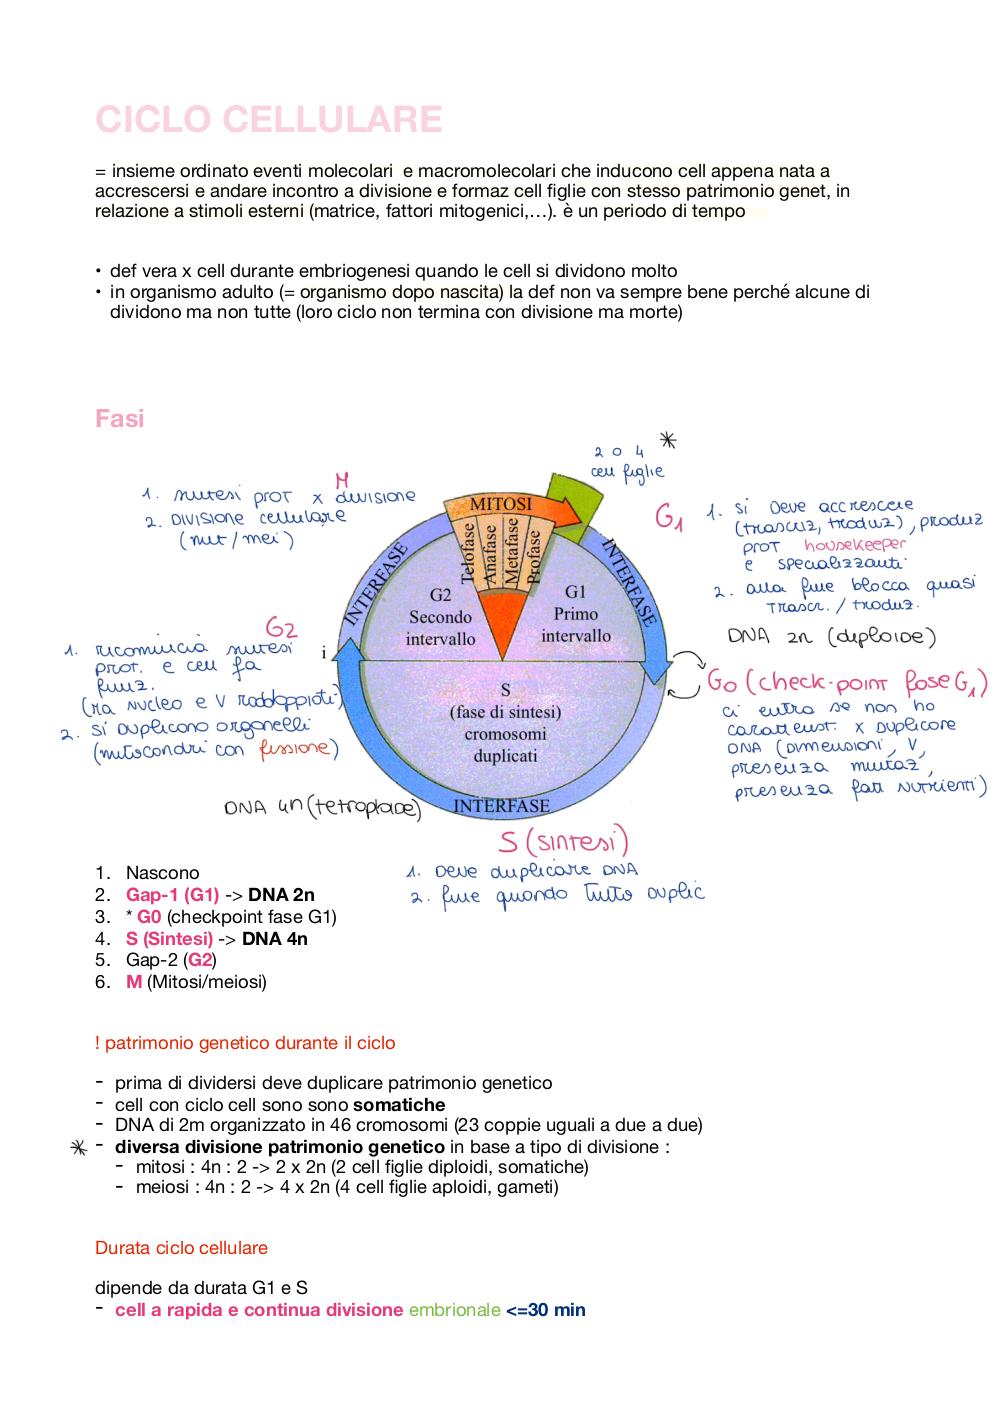 CICLO CELLULARE
= insieme ordinato eventi molecolari e macromolecolari che inducono cell appena nata a
accrescersi e andare incontro a divisione e formaz cell figlie con stesso patrimonio genet, in
relazione a stimoli esterni (matrice, fattori mitogenici,…). è un periodo di tempo
• def vera x cell durante embriogenesi quando le cell si dividono molto
• in organismo adulto (= organismo dopo nascita) la def non va sempre bene perché alcune di
dividono ma non tutte (loro ciclo non termina con divisione ma morte)
Fasi
2 o 4 *
cell figlie
M
1. sintesi prot x divisione
2. divisione cellulare
(mit/mei)
G1
1. si deve accrescere
(trascriz, traduz), produz
prot housekeeper
e specializzanti
2. alla fine blocca quasi
trascr. / traduz.
DNA 2n (diploide)
MITOSI
Telofase
Anafase
Metafase
Profase
INTERFASE
INTERFASE
G2
Secondo
intervallo
G1
Primo
intervallo
G2
1. ricomincia sintesi
prot. e cell fa
funz.
(ha nucleo e V raddoppiati)
2. si duplicano organelli
(mitocondri con fissione)
i
S
(fase di sintesi)
cromosomi
duplicati
INTERFASE
G0 (check-point fase G1)
ci entra se non ha
caratterist. x duplicare
DNA (dimensioni, V,
presenza mutaz,
presenza fatt nutrienti)
DNA 4n (tetraploide)
S (sintesi)
1. deve duplicare DNA
2. fine quando tutto duplic
1. Nascono
2. Gap-1 (G1) -> DNA 2n
3. * G0 (checkpoint fase G1)
4. S (Sintesi) -> DNA 4n
5. Gap-2 (G2)
6. M (Mitosi/meiosi)
! patrimonio genetico durante il ciclo
- prima di dividersi deve duplicare patrimonio genetico
- cell con ciclo cell sono sono somatiche
- DNA di 2m organizzato in 46 cromosomi (23 coppie uguali a due a due)
* - diversa divisione patrimonio genetico in base a tipo di divisione :
- mitosi : 4n : 2 -> 2 x 2n (2 cell figlie diploidi, somatiche)
- meiosi : 4n : 2 -> 4 x 2n (4 cell figlie aploidi, gameti)
Durata ciclo cellulare
dipende da durata G1 e S
- cell a rapida e continua divisione embrionale <=30 min